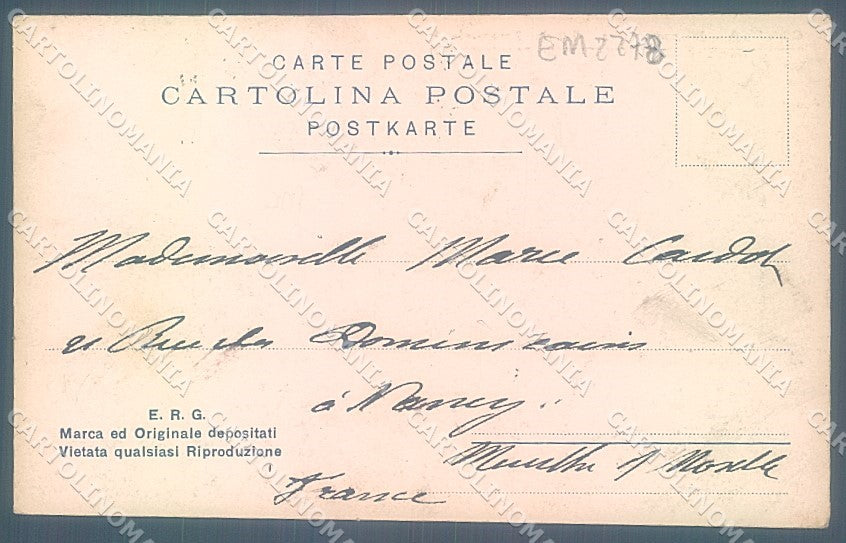 EM2278
CARTE POSTALE
CARTOLINA POSTALE
POSTKARTE
Mademoiselle Marie
21 Rue des Dominicains
à Nancy.
Meurthe & Moselle
France
E. R. G.
Marca ed Originale depositati
Vietata qualsiasi Riproduzione
CARTOLINOMANIA